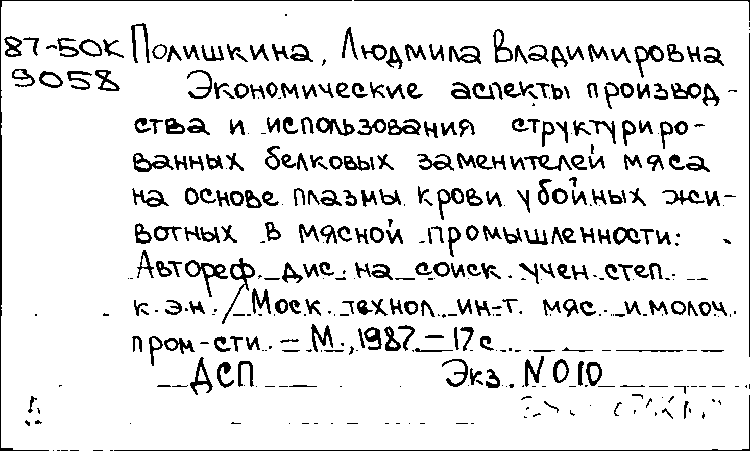 87-50К Полишкина, Людмила Владимировна
9058 Экономические аспекты производ-
ства и использования структуриро-
ванных белковых заменителей мяса
на основе плазмы крови убойных жи-
вотных в мясной промышленности:
Автореф. дис. на соиск. учен. степ.
к.э.н. / Моск. технол. ин-т. мяс. и молоч.
пром-сти. - М., 1987. - 17 с
ДСП Экз. N 010